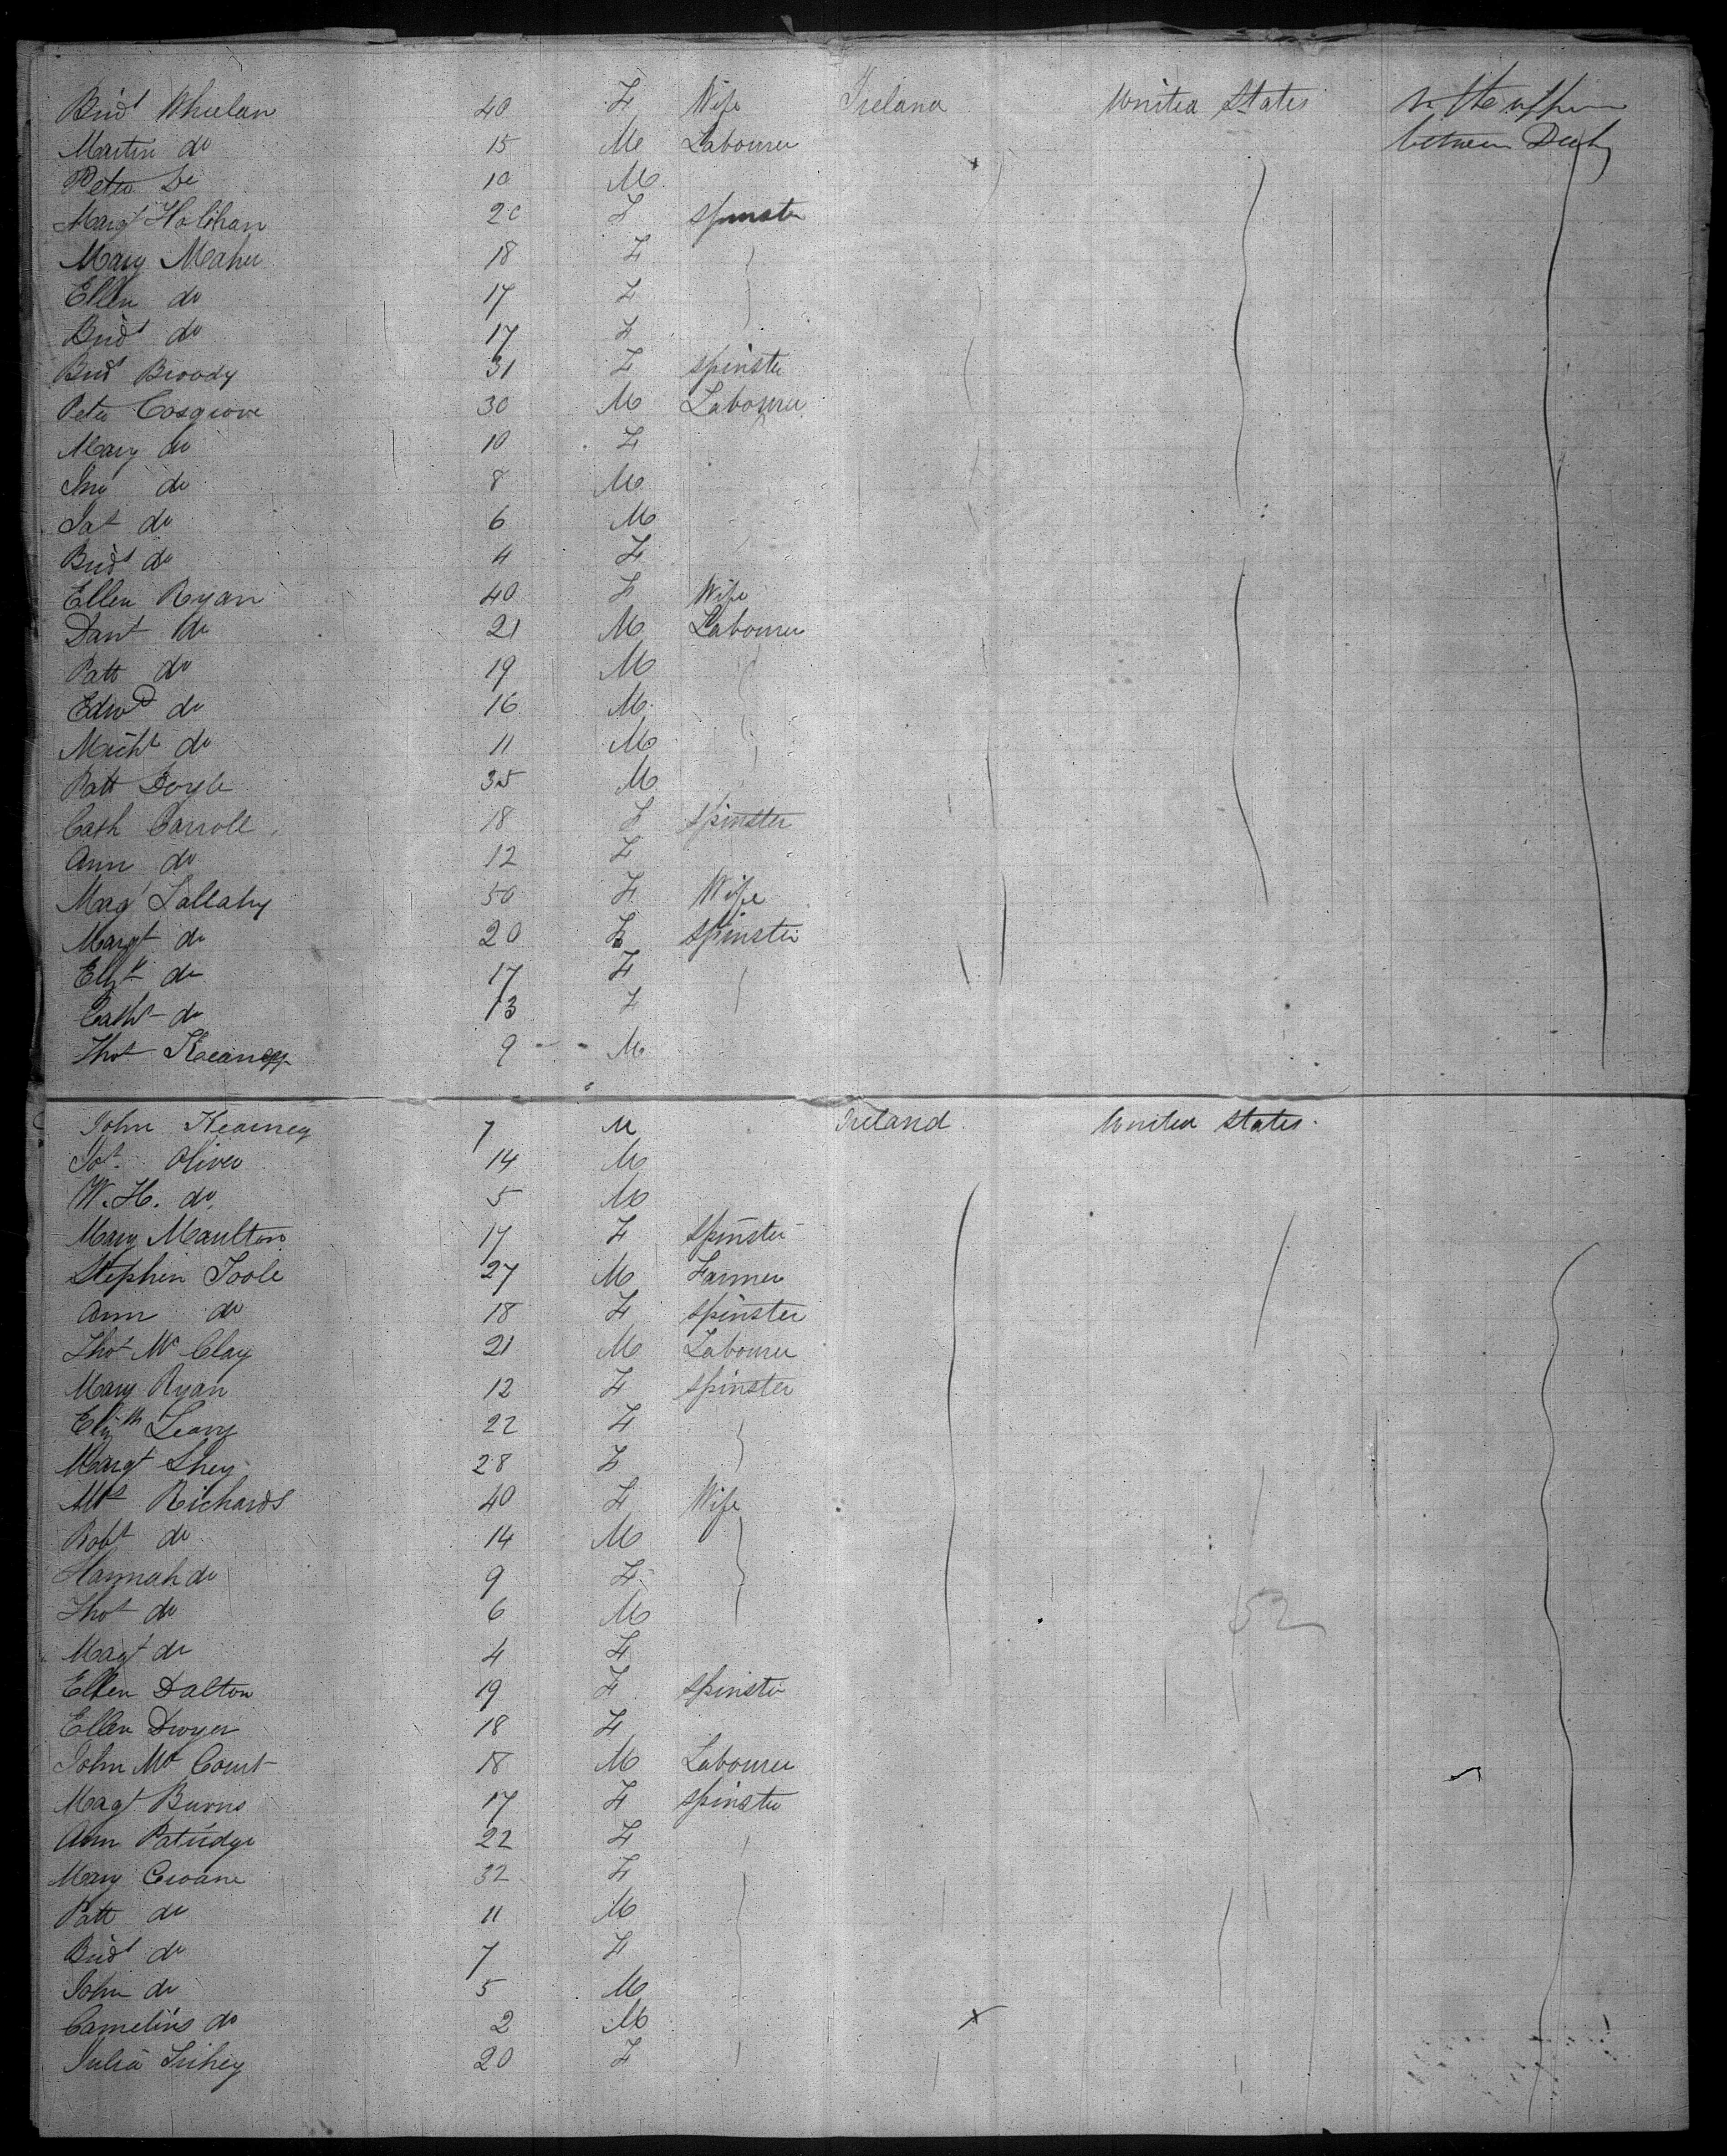 Bridt Wheelan 40 F Wife Ireland United States In the upper
Martin do 15 M Labourer between Deck
Peter do 10 M
Margt Holihan 20 F Spinster
Mary Maher 18 F
Ellen do 17 F
Bridt do 17 F
Bridt Broody 31 F Spinster
Peter Cosgrove 30 M Labourer
Mary do 10 F
Jno do 8 M
Pat do 6 M
Bridt do 4 F
Ellen Ryan 40 F Wife
Danl do 21 M Labourer
Patt do 19 M
Edwd do 16 M
Michl do 11 M
Patt Doyle 35 M
Cath Carroll 18 F Spinster
Ann do 12 F
Mag Lallahy 50 F Wife
Margt do 20 F Spinster
Elizth do 17 F
Cathe do 13 F
Thos Kearney 9 M
John Kearney 7 M Ireland United States
Jos. Oliver 14 M
W. H. do 5 M
Mary Maulton 17 F Spinster
Stephen Toole 27 M Farmer
Ann do 18 F Spinster
Thos Mc Clay 21 M Labourer
Mary Ryan 12 F Spinster
Elizth Leary 22 F
Margt Shey 28 F
Mrs Richards 40 F Wife
Robt do 14 M
Hannah do 9 F
Thos do 6 M 52
Magt do 4 F
Ellen Dalton 19 F Spinster
Ellen Dwyer 18 F
John Mc Court 18 M Labourer
Magt Burns 17 F Spinster
Ann Patridge 22 F
Mary Croane 32 F
Patt do 11 M
Bridt do 7 F
John do 5 M
Camelius do 2 M X
Julia Tuhey 20 F